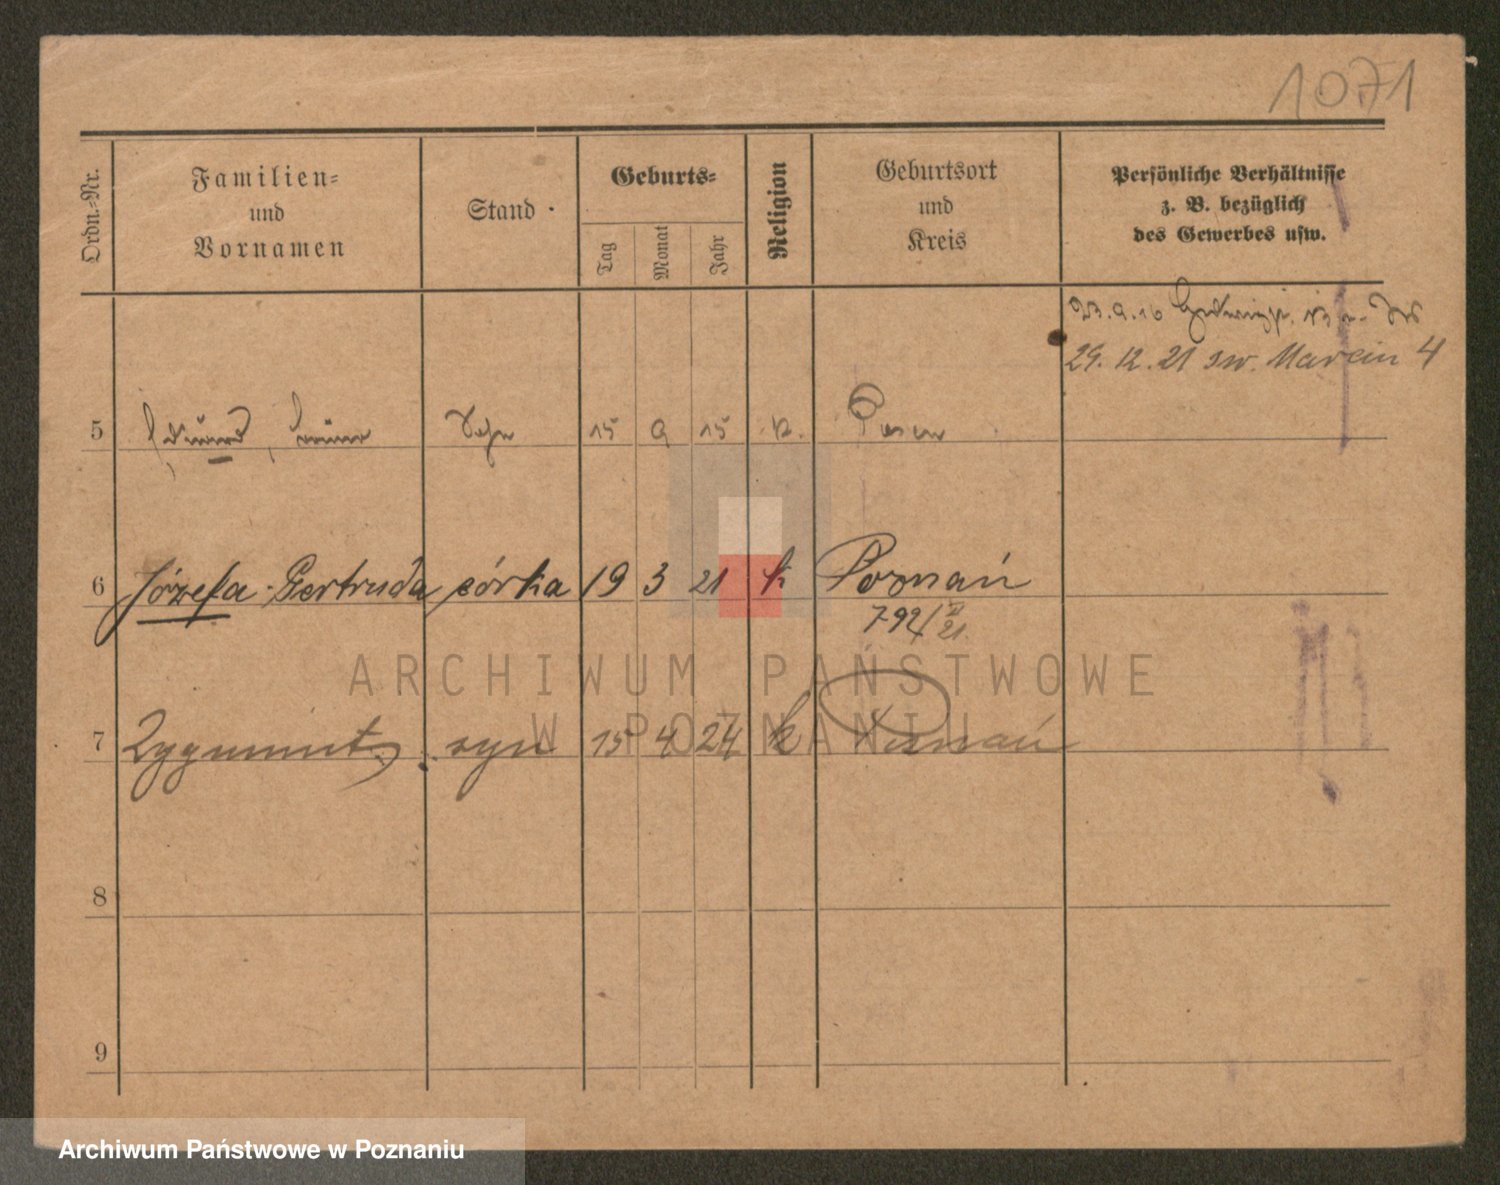 1071
Ordn.-Nr.
Familien-
und
Vornamen
Stand
Geburts-
Tag
Monat
Jahr
Religion
Geburtsort
und
Kreis
Persönliche Verhältnisse
z. B. bezüglich
des Gewerbes usw.
23.9.16
29.12.21 św. Marcin 4
5 Sohn 15 9 15 k. Posen
6 Józefa Gertruda córka 19 3 21 k Poznań
792/21
7 Zygmunt syn 15 4 24 k Poznań
8
9
ARCHIWUM PAŃSTWOWE
W POZNANIU
Archiwum Państwowe w Poznaniu